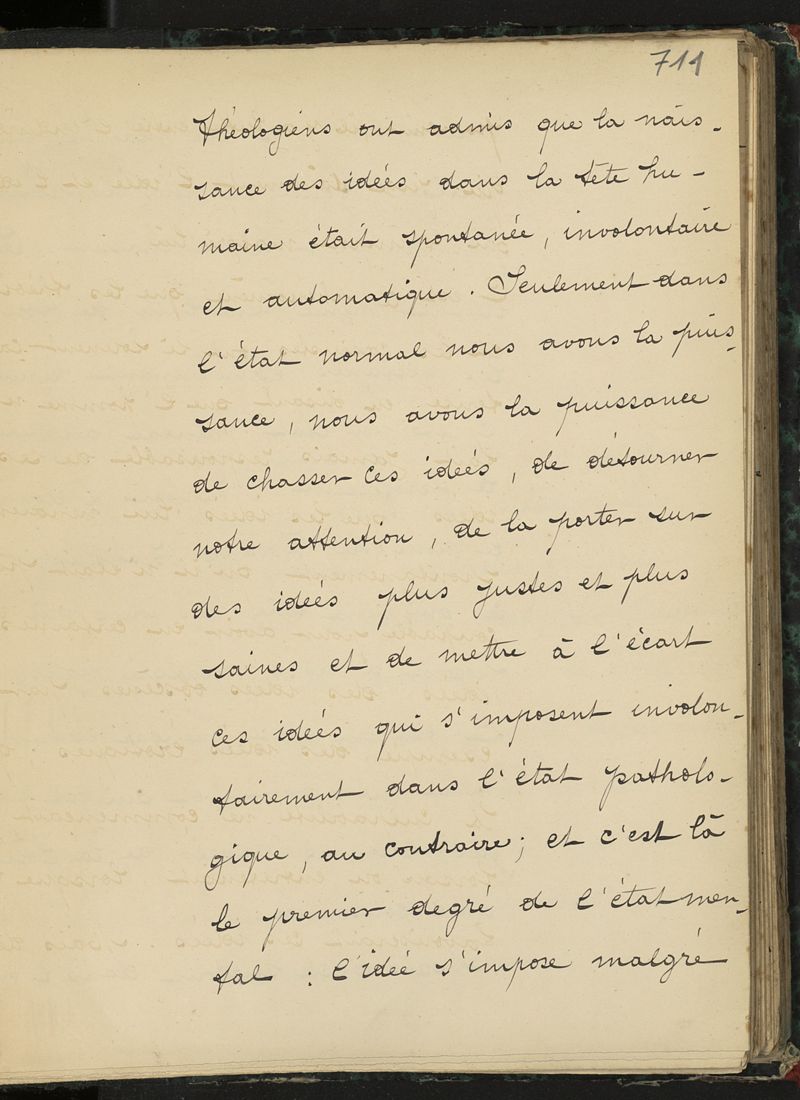 711
théologiens ont admis que la nais-
sance des idées dans la tête hu-
maine était spontanée, involontaire
et automatique. Seulement dans
l'état normal nous avons la puis-
sance, nous avons la puissance
de chasser ces idées, de détourner
notre attention, de la porter sur
des idées plus justes et plus
saines et de mettre à l'écart
ces idées qui s'imposent involon-
tairement dans l'état patholo-
gique, au contraire; et c'est là
le premier degré de l'état men-
tal : l'idée s'impose malgré